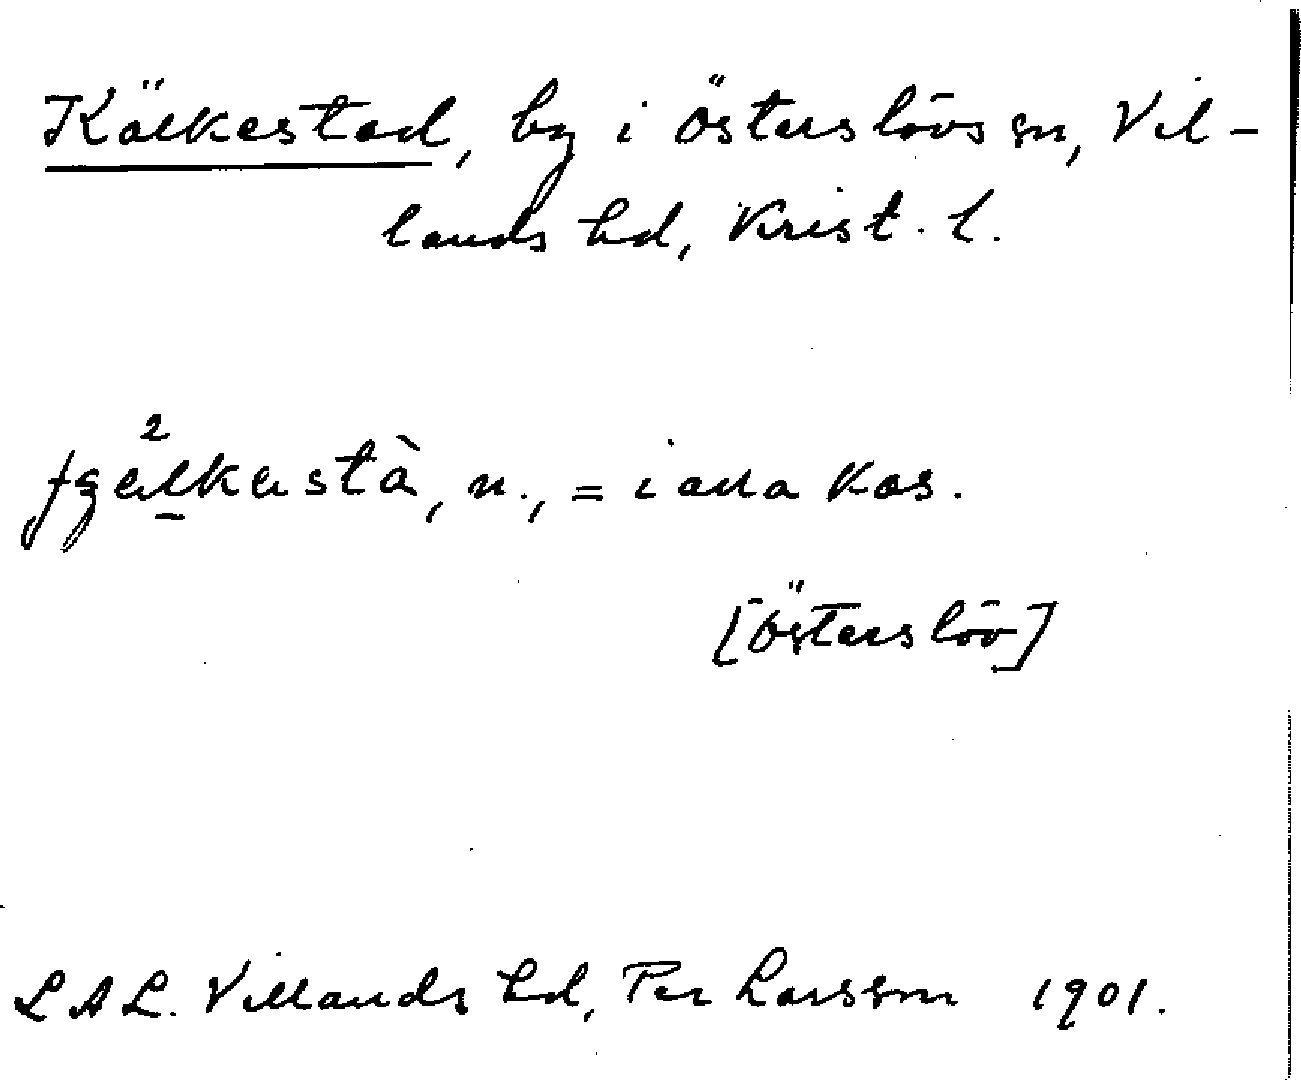 Kälkestad, by i Österslövs sn, Vil-
lands hd, Krist. l.
n., = i alla kas.
[Österslöv]
LAL. Villands hd, Per Larsson 1901.